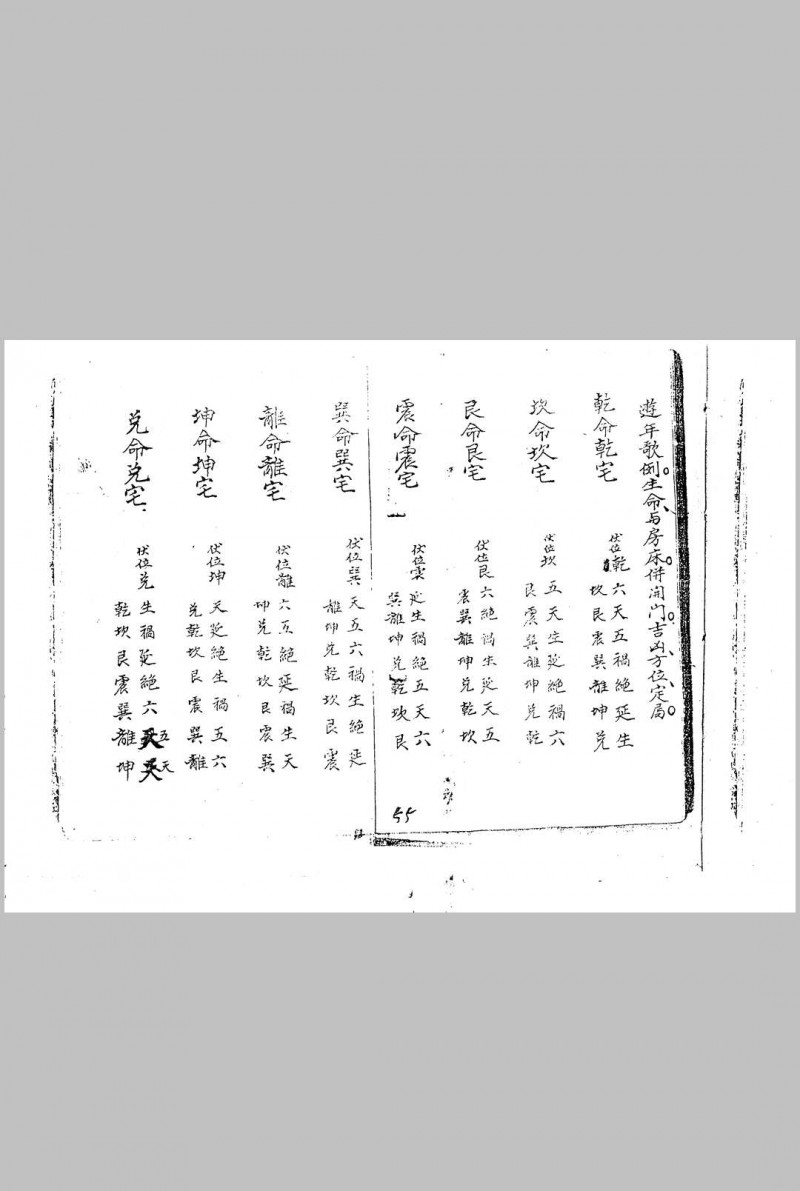 遊年歌例生命与房床併開門吉凶方位定局
乾命乾宅 伏位乾 六天五禍絕延生
坎艮震巽離坤兑
坎命坎宅 伏位坎 五天生延絕禍六
艮震巽離坤兑乾
艮命艮宅 伏位艮 六絕禍生延天五
震巽離坤兑乾坎
震命震宅 伏位震 延生禍絕五天六
巽離坤兑乾坎艮
55
巽命巽宅 伏位巽 天五六禍生絕延
離坤兑乾坎艮震
離命離宅 伏位離 六五絕延禍生天
坤兑乾坎艮震巽
坤命坤宅 伏位坤 天延絕生禍五六
兑乾坎艮震巽離
兑命兑宅 伏位兑 生禍延絕六五天
乾坎艮震巽離坤